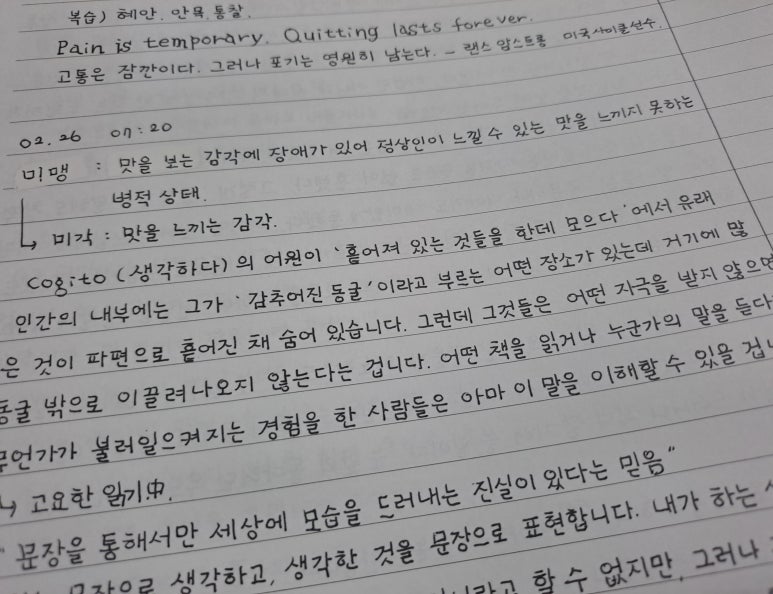 복습) 혜안, 안목, 통찰.
Pain is temporary. Quitting lasts forever.
고통은 잠깐이다. 그러나 포기는 영원히 남는다. - 랜스 암스트롱 미국사이클선수.
02.26 07:20
미맹 : 맛을 보는 감각에 장애가 있어 정상인이 느낄 수 있는 맛을 느끼지 못하는
병적 상태.
↳ 미각 : 맛을 느끼는 감각.
cogito (생각하다)의 어원이 '흩어져 있는 것들을 한데 모으다'에서 유래
인간의 내부에는 그가 '감추어진 동굴'이라고 부르는 어떤 장소가 있는데 거기에 많
은 것이 파편으로 흩어진 채 숨어 있습니다. 그런데 그것들은 어떤 자극을 받지 않으면
동굴 밖으로 이끌려나오지 않는다는 겁니다. 어떤 책을 읽거나 누군가의 말을 듣다
무언가가 불러일으켜지는 경험을 한 사람들은 아마 이 말을 이해할 수 있을 겁니
↳ 고요한 읽기中.
"문장을 통해서만 세상에 모습을 드러내는 진실이 있다는 믿음"
문장으로 생각하고, 생각한 것을 문장으로 표현합니다. 내가 하는
할 수 없지만, 그러나